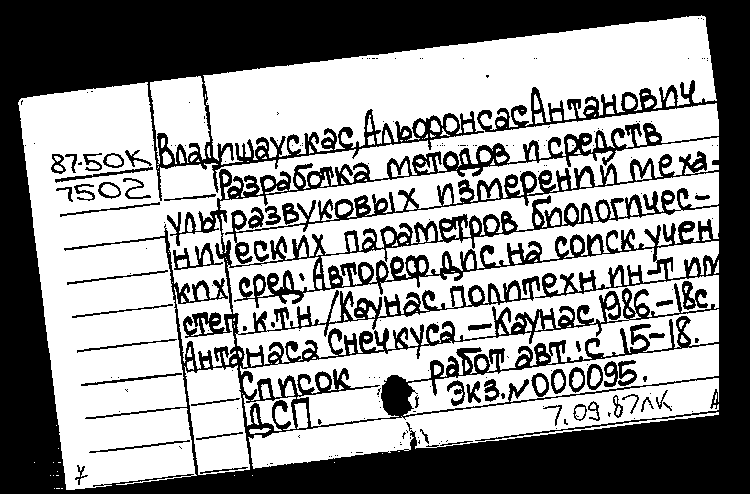 87-50К
7502
Владишаускас, Альфонсас Антанович.
Разработка методов и средств
ультразвуковых измерений меха-
нических параметров биологичес-
ких сред: Автореф. дис. на соиск. учен.
степ. к.т.н. /Каунас. политехн. ин-т им.
Антанаса Снечкуса. — Каунас, 1986. — 18с.
Список работ авт.: с. 15-18.
ДСП. Экз. №000095.
7.09.87ЛК